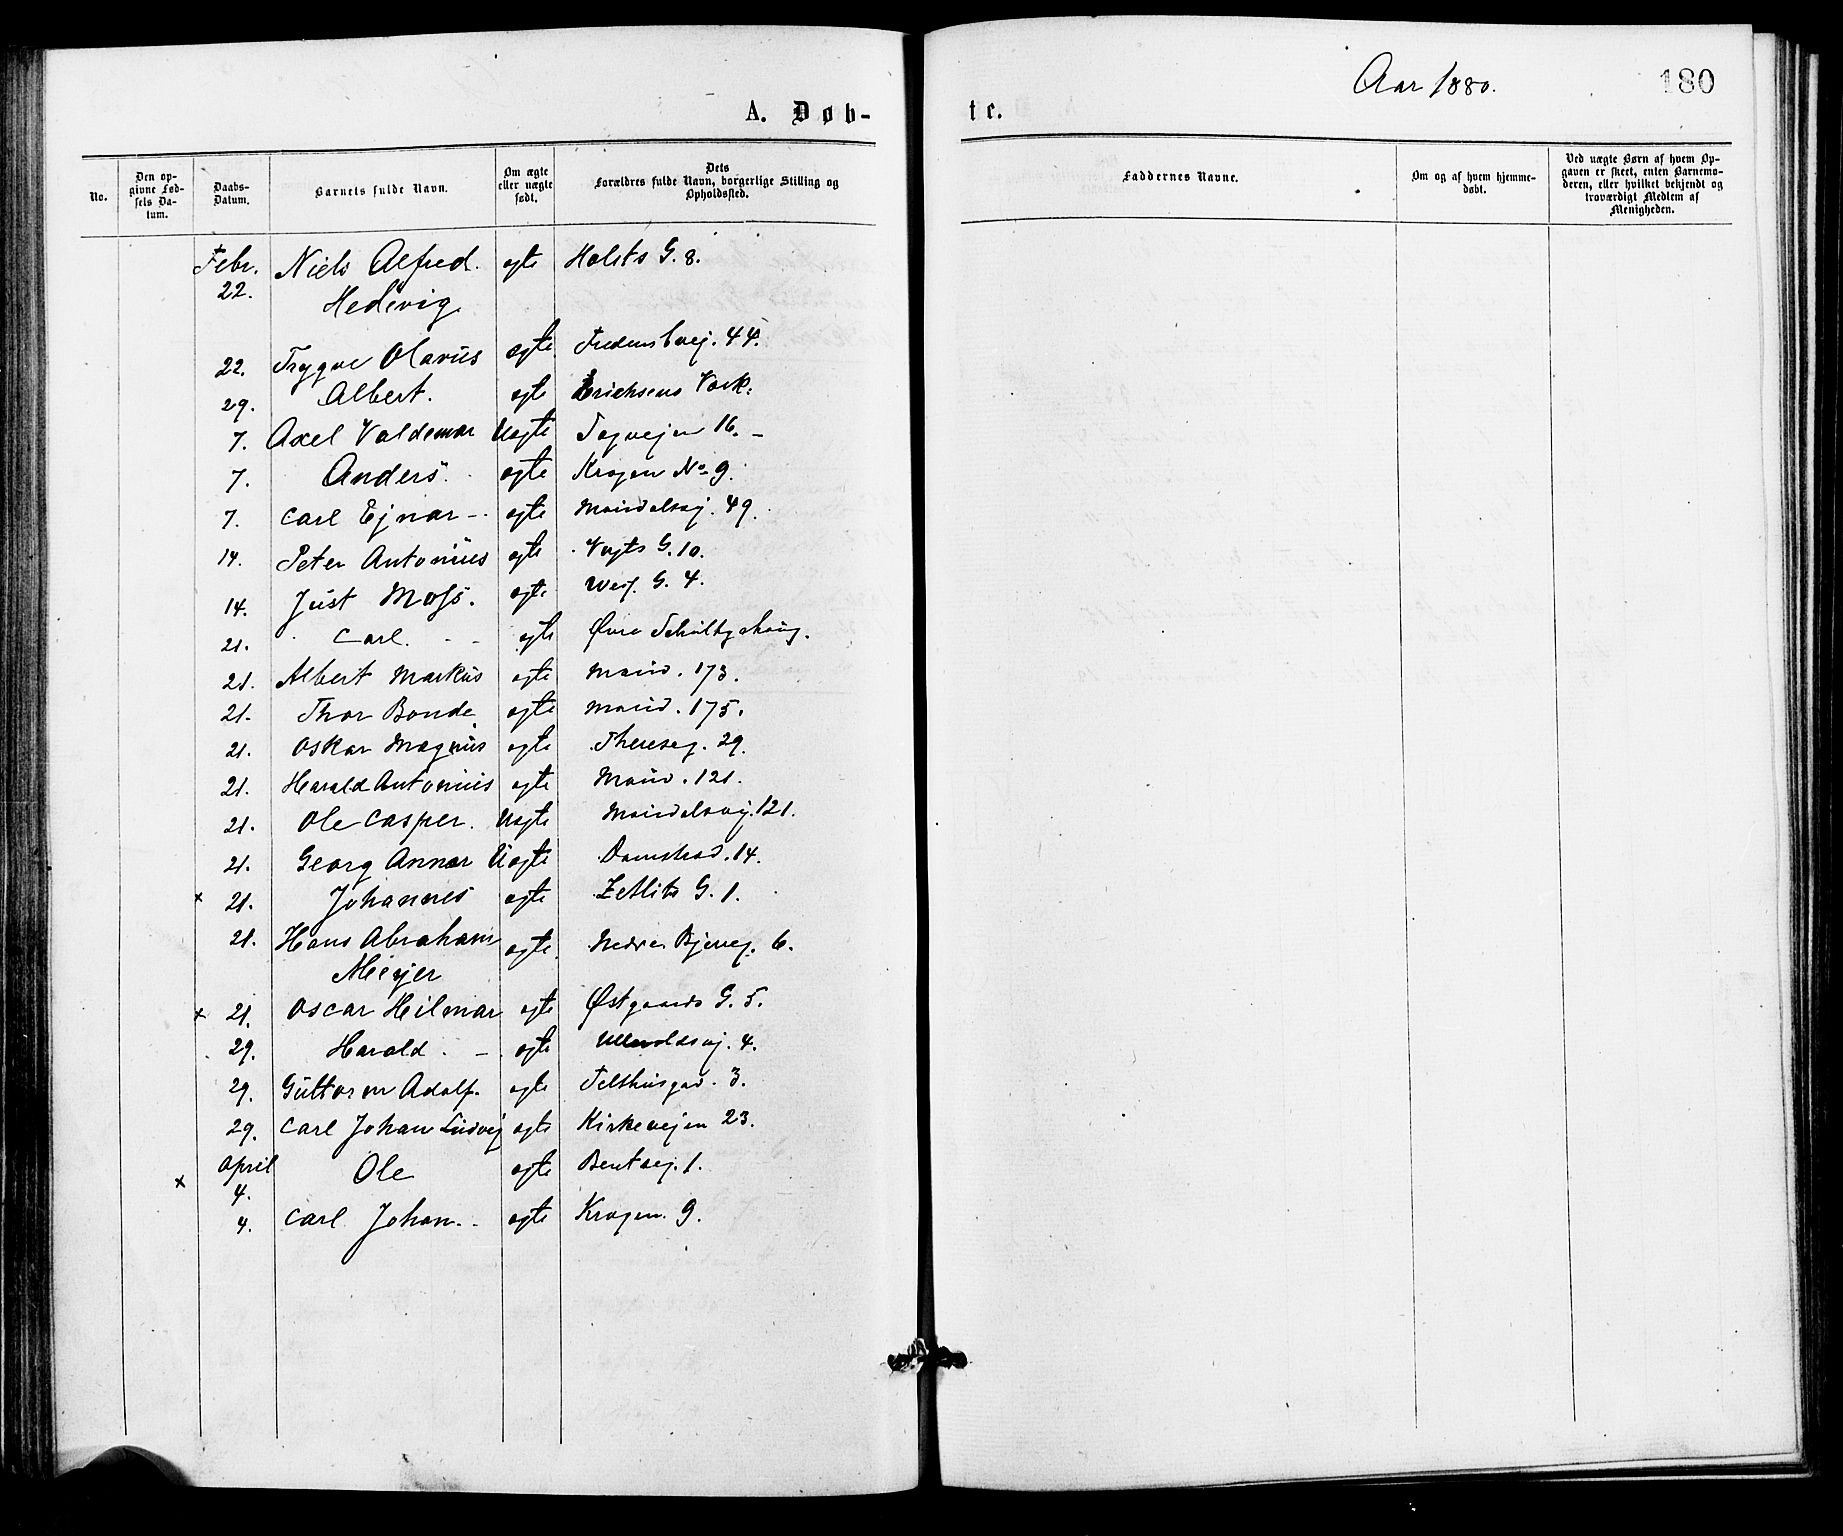 Aar 1880.
180
A. Døb-
te.
No.
Den op-
givne Fød-
sels Da-
tum.
Daabs-
Datum.
Barnets fulde Navn.
Om ægte
eller uægte
født.
Dets
Forældres fulde Navn, borgerlige Stilling og
Opholdssted.
Faddernes Navne.
Om og af hvem hjemme-
døbt.
Ved uægte Børn af hvem Op-
gaven er skeet, enten Barnemo-
deren, eller hvilket bekjendt og
troværdigt Medlem af
Menigheden.
Febr. 22. Niels Alfred Hedevig ægte Holsts G. 8.
22. Trygve Olavus ægte 44.
29. Albert. ægte Erichsens
7. Axel Valdemar Uægte 16. –
7. Anders. ægte Krogen No 9.
7. Carl Ejnar – ægte Maridalsvj. 49.
14. Peter Antonius ægte Vogts G. 10.
14. Just Moss. ægte G. 4.
21. Carl. – – ægte Øvre
21. Albert Markus ægte Marid. 173.
21. Thor Bonde ægte Marid. 175.
21. Oskar Magnus ægte Thereseg. 29.
21. Harald Antonius ægte Marid. 121.
21. Ole Casper. Uægte Maridalsvej. 121.
21. Georg Annar Uægte Damstrad. 14.
x 21. Johannes ægte Zetlits G. 1.
21. Hans Abraham Meyjer ægte. Nedre 6.
x 21. Oscar Hilmar ægte Østgaards G. 5.
29. Harald. – ægte Ullevoldsvj. 4.
29. Guttorm Adolf. ægte Felthusgad. 3.
29. Carl Johan Ludvig ægte Kirkevejen 23.
x April 4. Ole ægte Bentseg. 1.
4. Carl Johan. – ægte Krogen. 9.